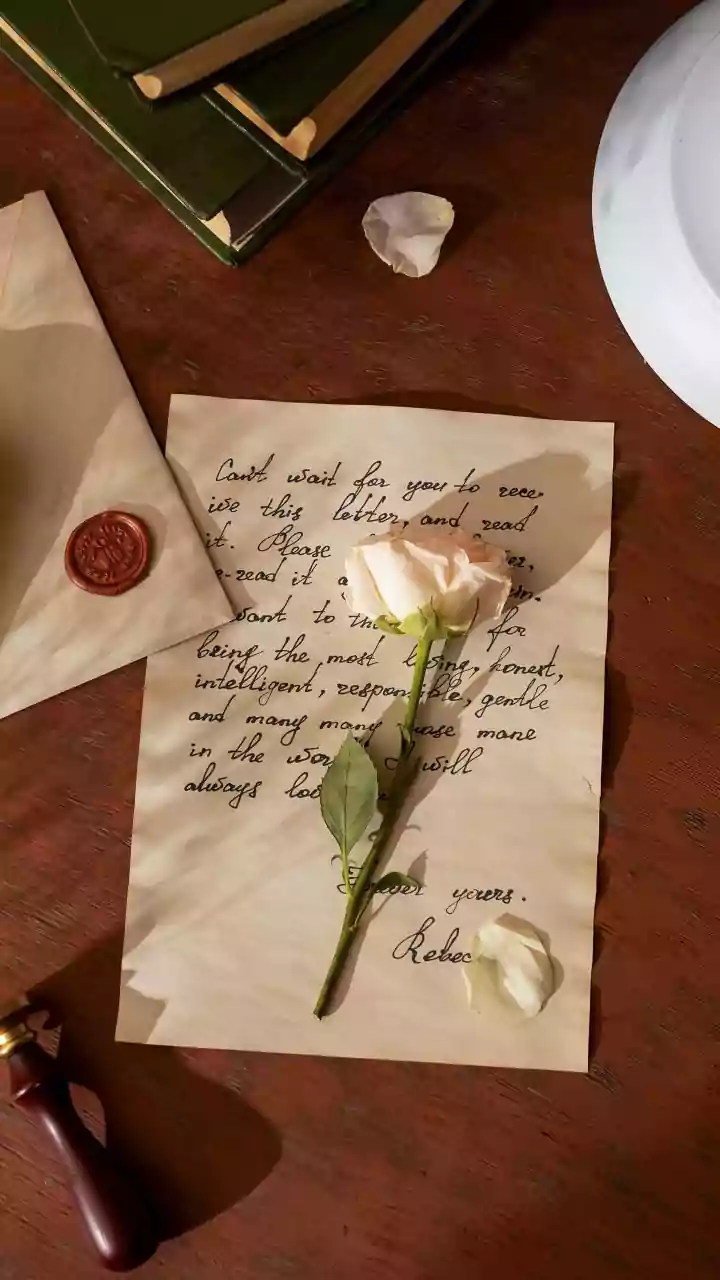 Can't wait for you to rece-
ive this letter, and read
it. Please
e-read it
want to for
being the most loving, honest,
intelligent, responsible, gentle
and many many mane
in the will
always
Forever yours.
Rebec